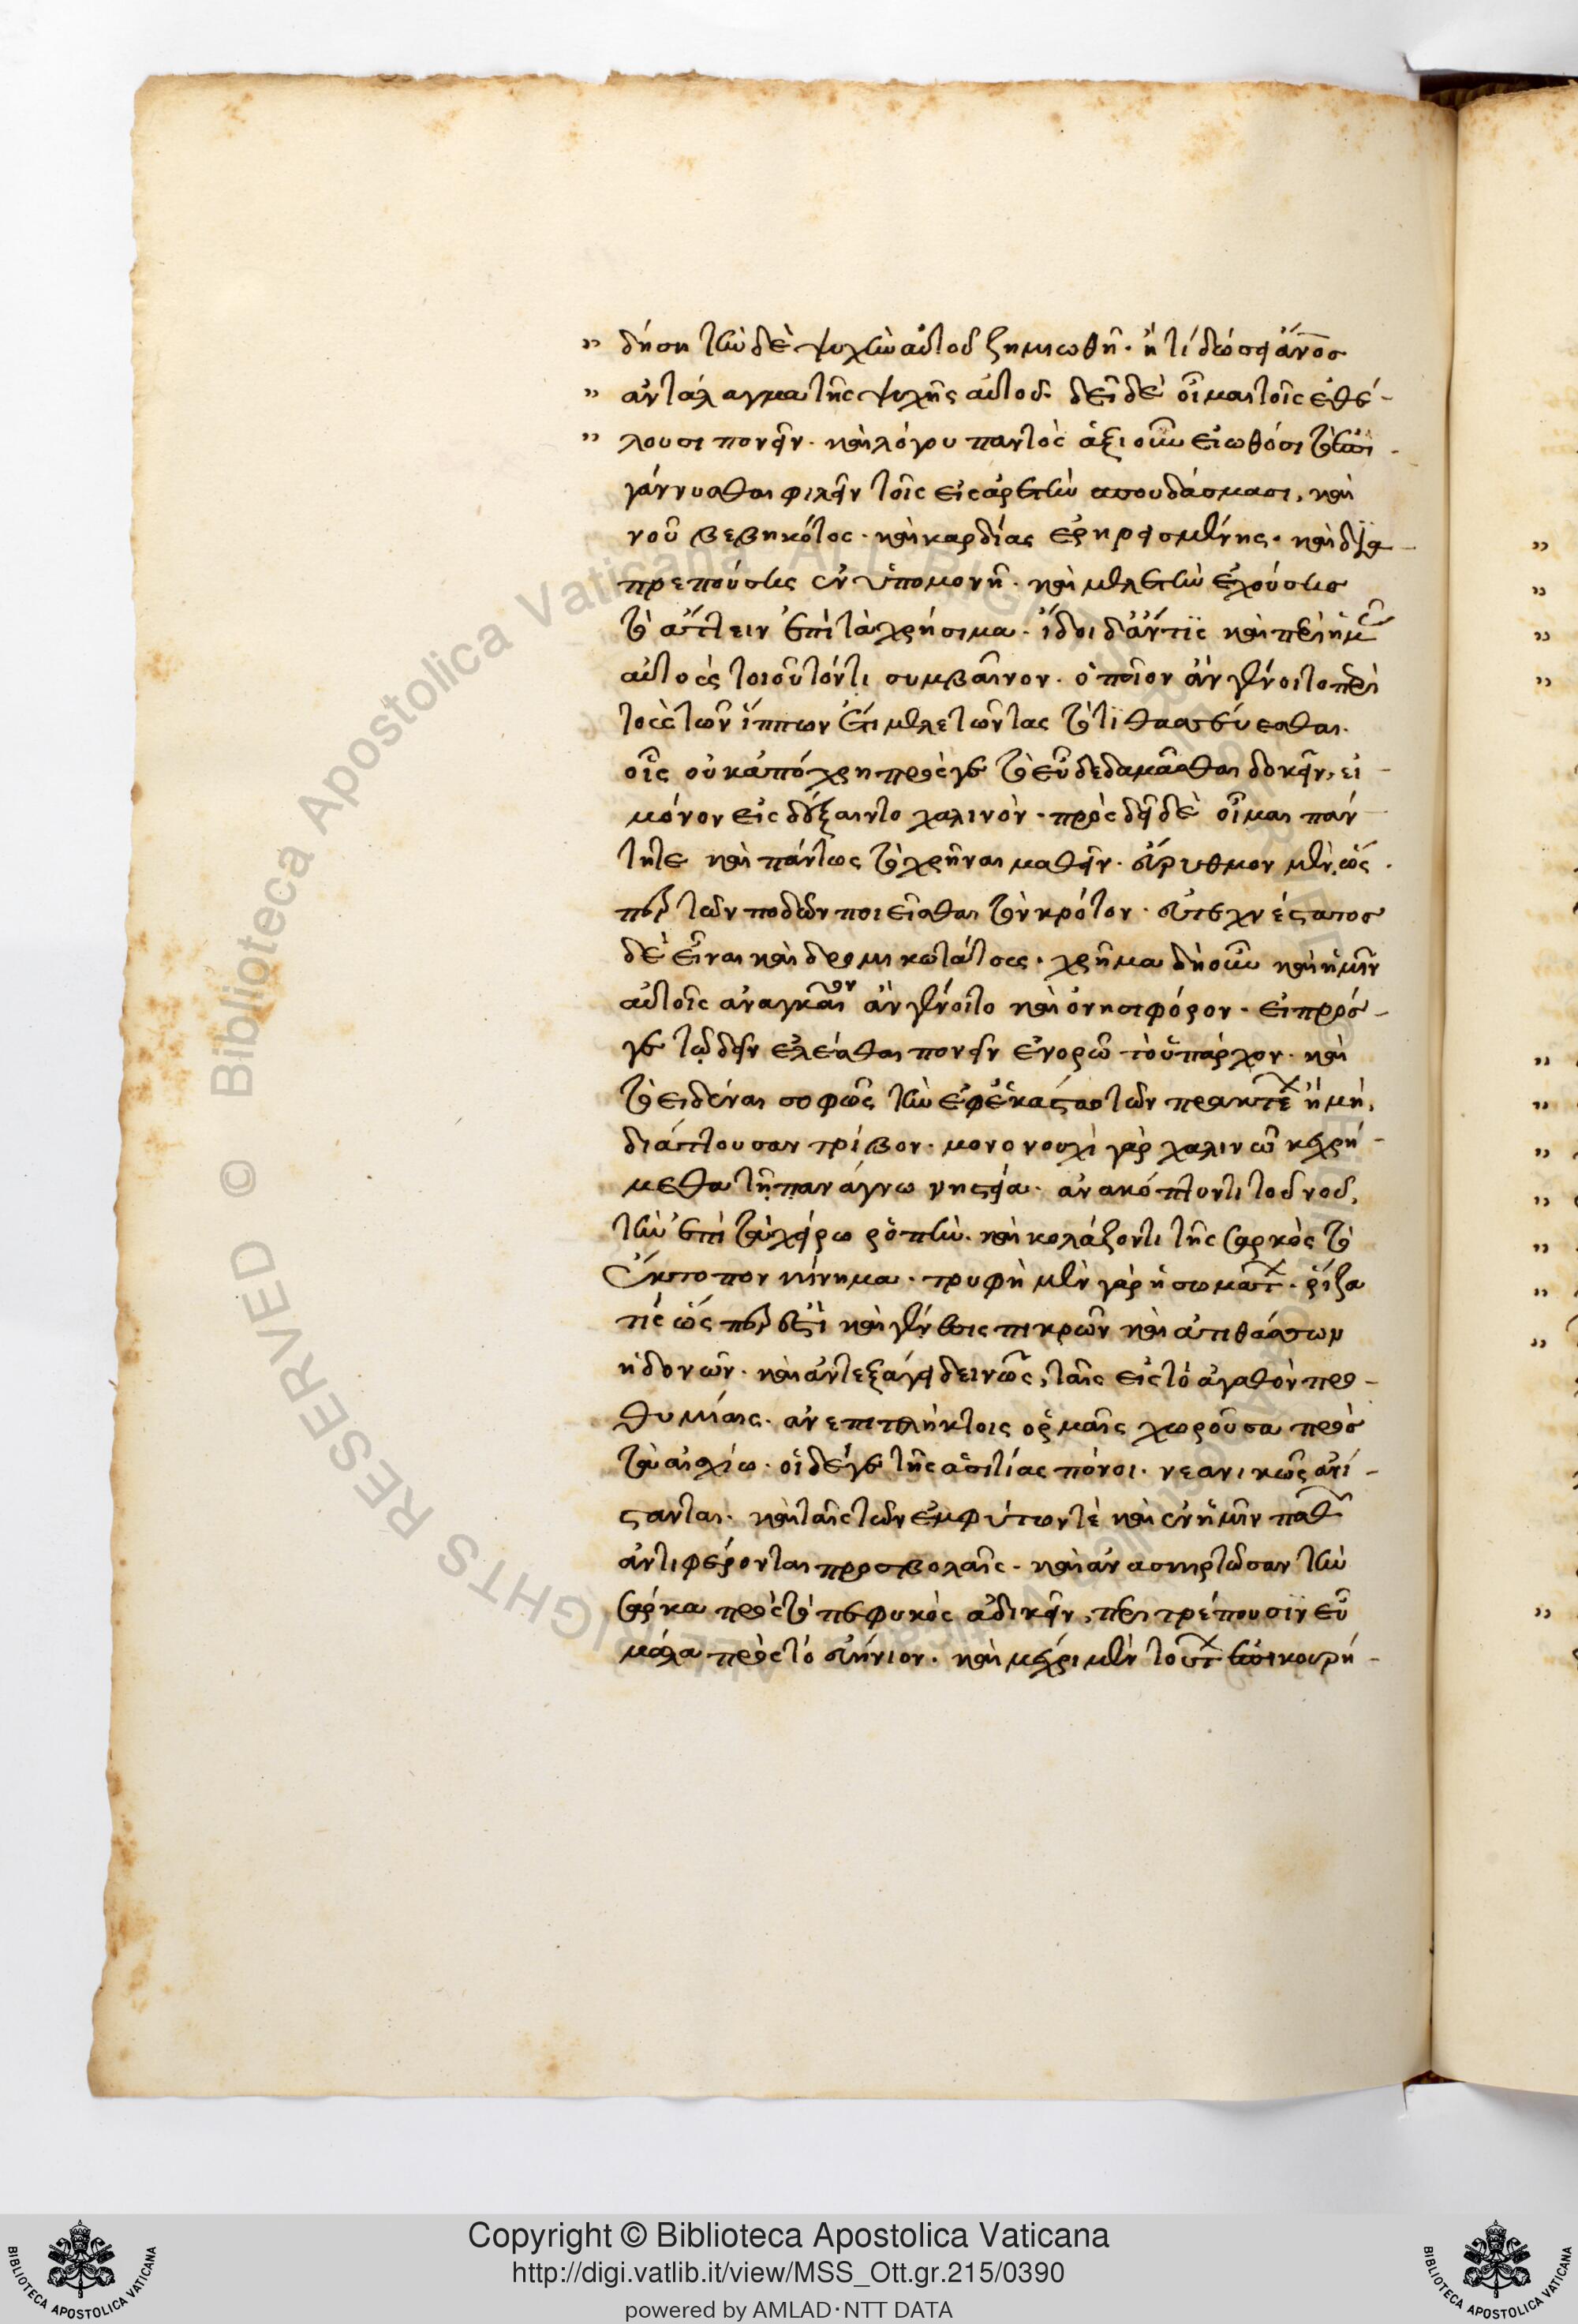 δήση τὴν δὲ ψυχὴν αὐτοῦ ζημιωθῆ· ἢ τί δώσει ἄνος
ἀντάλαγμα τῆς ψυχῆς αὐτοῦ. δεῖ δὲ οἶμαι τοῖς ἐθέ-
λουσι πονεῖν. καὶ λόγου παντὸς ἀξιοῦν εἰωθόσι τὸ ἐπι-
γάννυσθαι φιλεῖν τοῖς εἰς ἀρετὴν σπουδάσμασι, καὶ
νοῦ βεβηκότος. καὶ καρδίας ἐρηρεισμένης. καὶ δια-
πρεπούσης ἐν ὑπομονῇ. καὶ μελετὴν ἐχούσης
τὸ ἄττειν ἐπὶ τὰ χρήσιμα. ἴδοι δ' ἄν τις καὶ περὶ ἡμᾶς
αὐτοὺς τοιοῦτόν τι συμβαῖνον. ὁποῖον ἂν γένοιτο περὶ
τοὺς τῶν ἵππων ἔτι μελετῶντας τὸ τιθασσεύεσθαι.
οἷς οὐκ ἀπόχρη πρός γε τὸ εὖ δεδαμᾶσθαι δοκεῖν, εἰ
μόνον εἰσδέξαιντο χαλινόν. πρὸς δεῖ δὲ οἶμαι πάν
τη τε καὶ πάντως τὸ χρῆναι μαθεῖν. εὔρυθμον μὲν ὥσ
περ τῶν ποδῶν ποιεῖσθαι τὸν κρότον. εὐτεχνέστατος
δὲ εἶναι καὶ δρομικωτάτους. χρῆμα δὴ οὖν καὶ ἡμῖν
αὐτοῖς ἀναγκαῖον ἂν γένοιτο καὶ ὀνησιφόρον. εἰ πρός
γε τῷ δεῖν ἑλέσθαι πονεῖν ἐνορῶτο ὑπάρχον. καὶ
τὸ εἰδέναι σοφῶς τὴν ἐφ' ἕκαστα τῶν πρακτέων ἢ μή,
διάττουσαν τρίβον. μονονουχὶ γὰρ χαλινῷ κεχρή-
μεθα τῇ παναγνω νηστεία. ἀνακόπτοντι τοῦ νοῦ,
τὴν ἐπὶ τὰ χείρω ῥοπήν. καὶ κολάζοντι τῆς σαρκὸς τὸ
ἔκτοπον κίνημα. τρυφὴ μὲν γὰρ ἡ σωματικὴ. ῥίζα
τις ὥσπερ ἐστὶ καὶ γένεσις πικρῶν καὶ ἀτιθάσσων
ἡδονῶν. καὶ ἀντεξάγει δεινῶς, ταῖς εἰς τὸ ἀγαθὸν προ-
θυμίαις. ἀνεπιπλήκτοις ὁρμαῖς χωροῦσα πρὸς
τὰ αἰσχίω. οἱ δέ γε τῆς ἀσιτίας πόνοι. νεανικῶς ἀντί-
στανται. καὶ ταῖς τῶν ἐμφύτων τὲ καὶ ἐν ἡμῖν παθῶν
ἀντιφέρονται προσβολαῖς. καὶ ἀνασκιρτῶσαν τὴν
σάρκα πρὸς τὸ πεφυκὸς ἀδικεῖν, περιτρέπουσιν εὖ
μάλα πρὸς τὸ εὐήνιον. καὶ μέχρι μὲν τούτων ἐπικουρή-
Copyright © Biblioteca Apostolica Vaticana
http://digi.vatlib.it/view/MSS_Ott.gr.215/0390
powered by AMLAD·NTT DATA